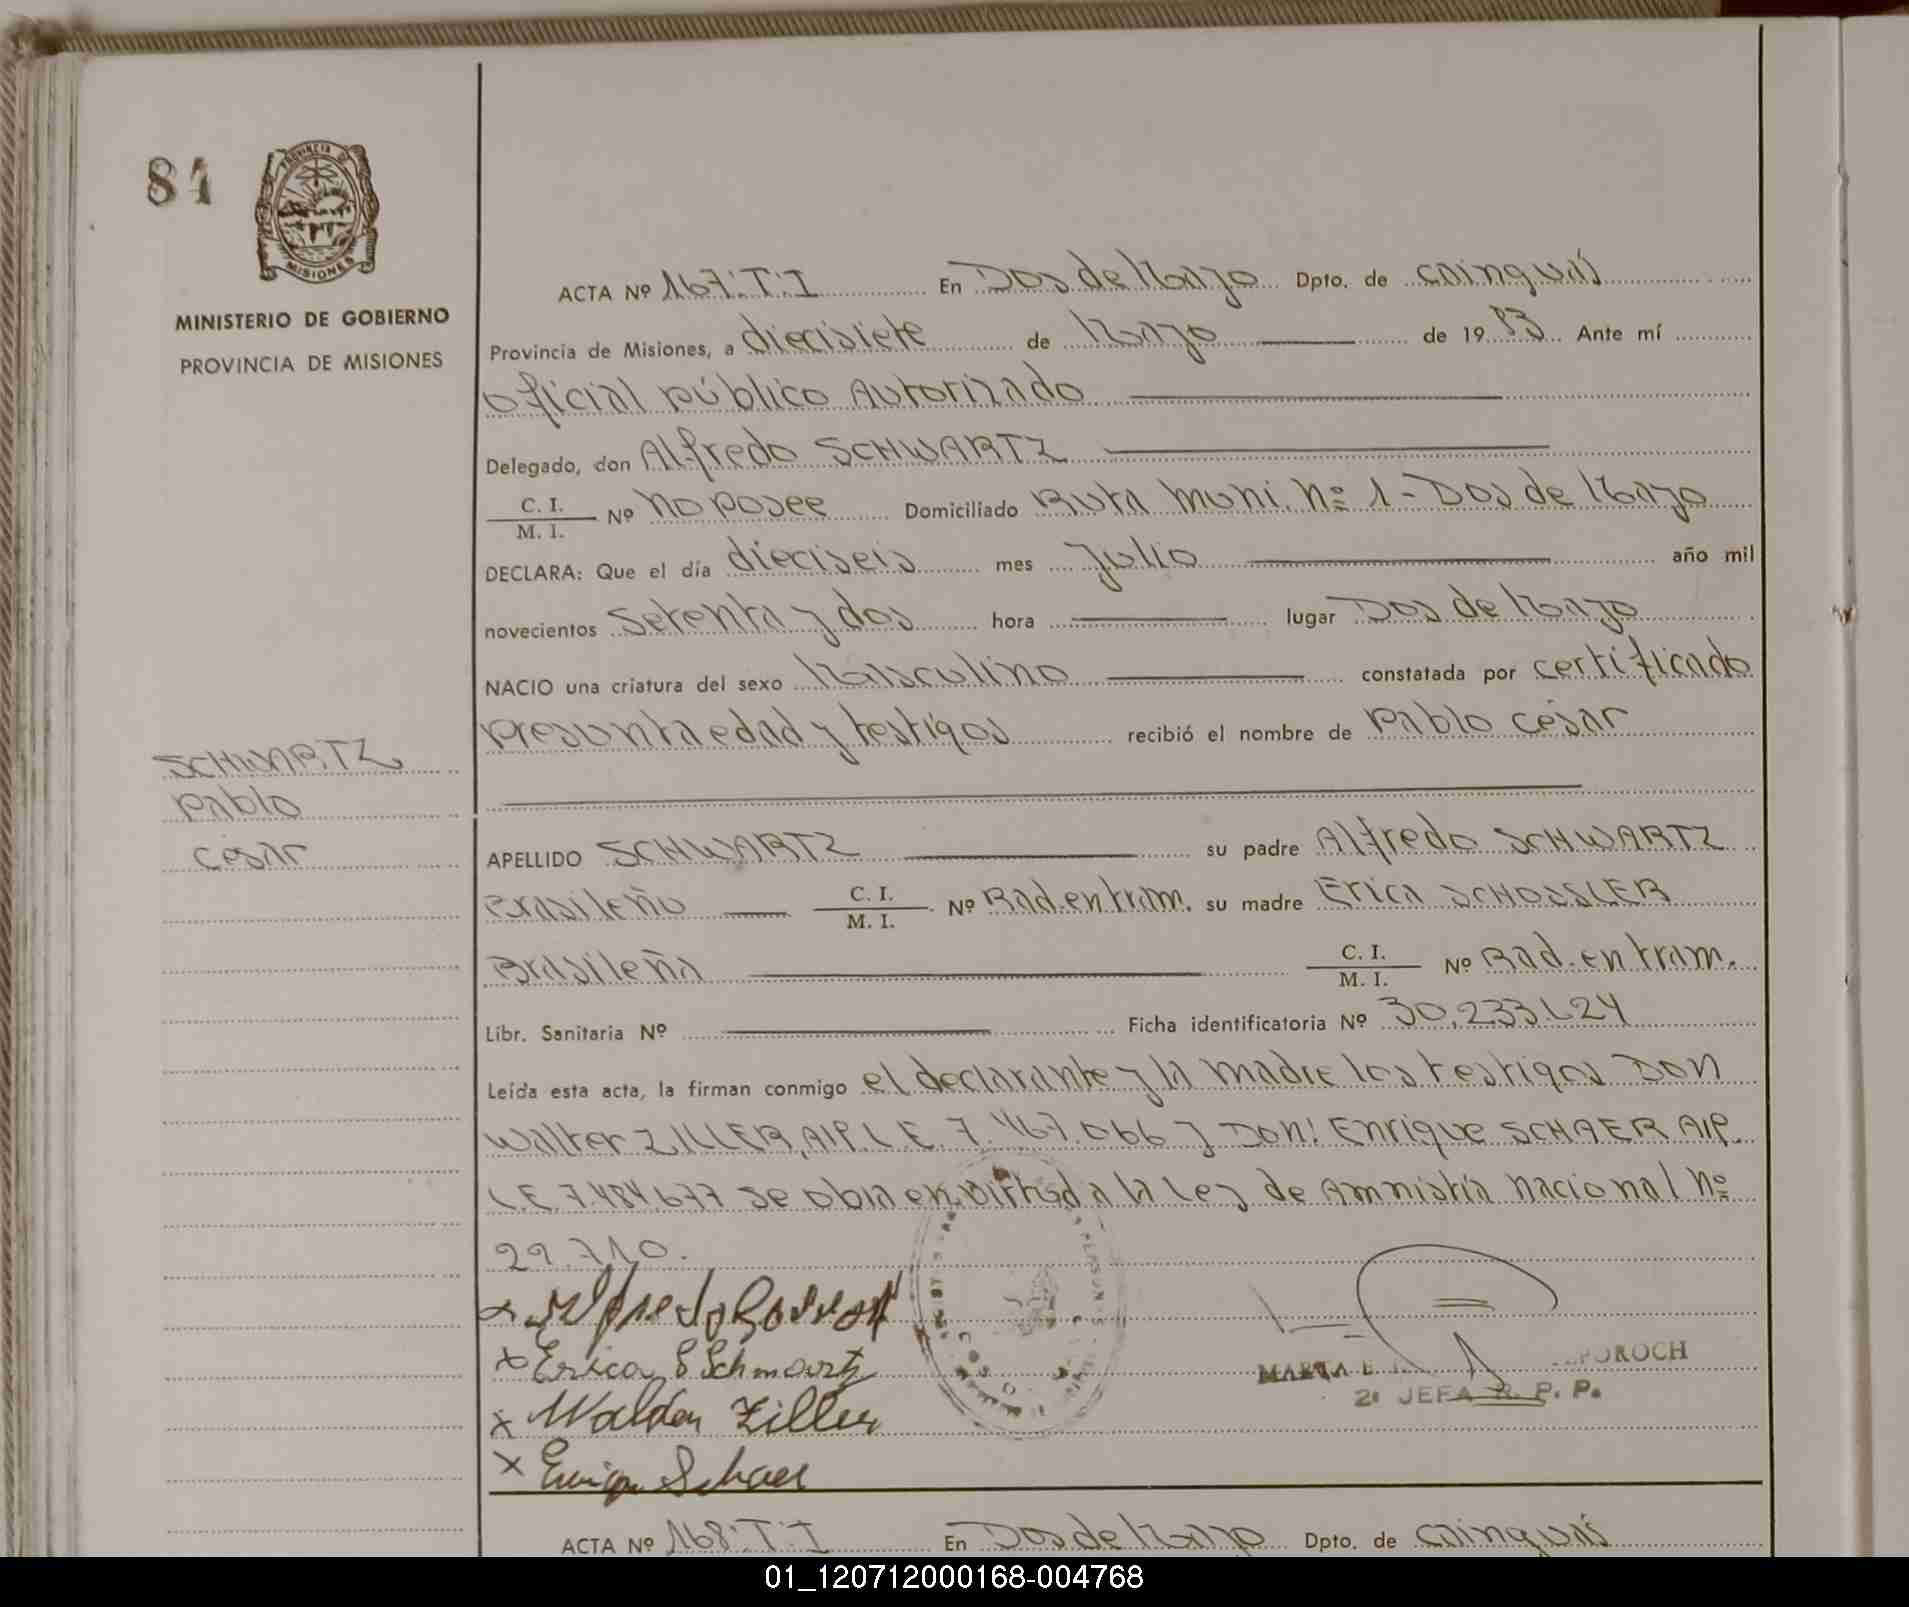 84
PROVINCIA DE
MISIONES
MINISTERIO DE GOBIERNO
PROVINCIA DE MISIONES
ACTA Nº 167:T:I En Dos de Mayo Dpto. de cainguás
Provincia de Misiones, a diecisiete de Mayo de 19 83 Ante mí
oficial público Autorizado
Delegado, don Alfredo SCHWARTZ
C. I.
M. I. Nº no posee Domiciliado Ruta Muni. Nº 1 - Dos de Mayo
DECLARA: Que el día dieciseis mes Julio año mil
novecientos setenta y dos hora lugar Dos de Mayo
NACIO una criatura del sexo Masculino constatada por certificado
presunta edad y testigos recibió el nombre de Pablo cesar
SCHWARTZ
Pablo
cesar
APELLIDO SCHWARTZ su padre Alfredo SCHWARTZ
Brasileño C. I.
M. I. Nº Rad.en tram. su madre Erica SCHOSSLER
Brasileña C. I.
M. I. Nº Rad. en tram.
Libr. Sanitaria Nº Ficha identificatoria Nº 30.233.624
Leída esta acta, la firman conmigo el declarante y la madre los testigos Don
Walter ZILLER, AIP. L.E. 7.467.066 y Don: Enrique SCHAER AIP.
L.E. 7.484.677 se obra en virtud a la Ley de Amnistía nacional Nº
22.710.
x Alfredo
x Erica S Schwartz
x Waldon Ziller
x Enrique Schaer
MARTA E. POROCH
2º JEFA R. P. P.
ACTA Nº 168:T:I En Dos de Mayo Dpto. de cainguás
01_120712000168-004768